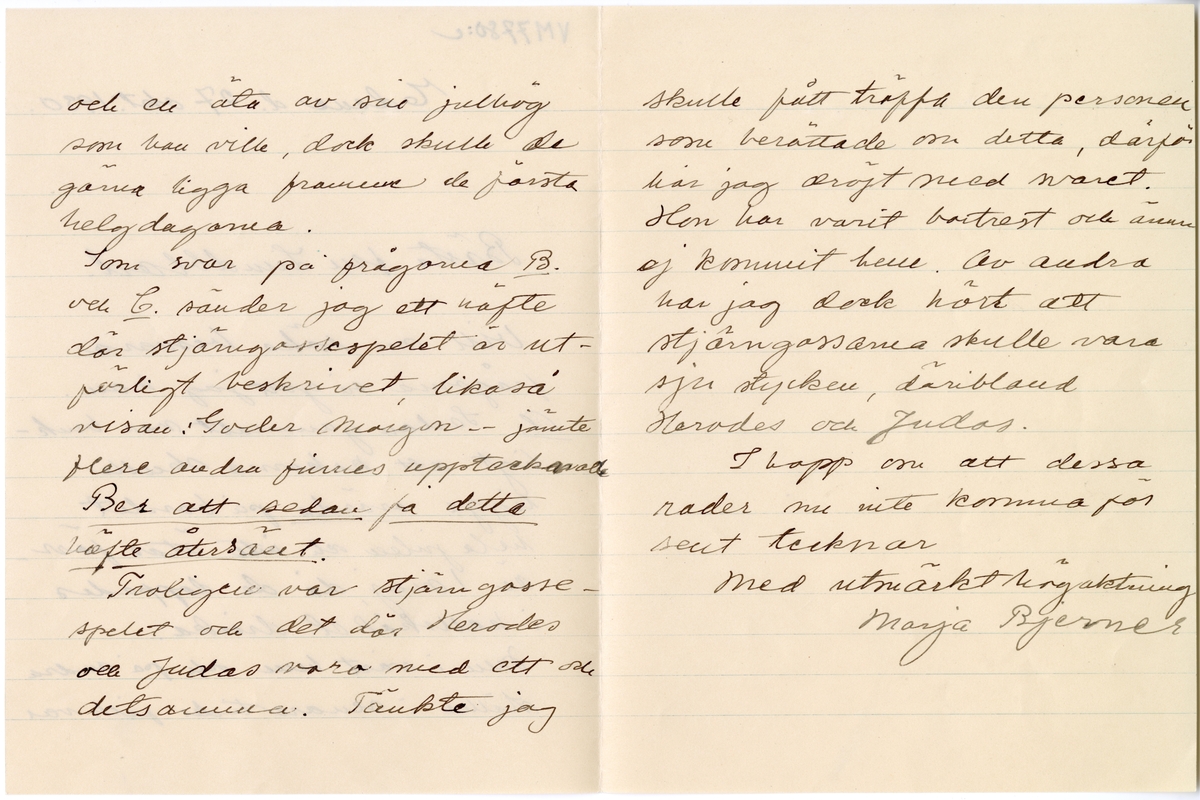 och en äta av sin julhög
som han ville, dock skulle de
gärna ligga framme de första
helgdagarna.
Som svar på frågorna B.
och C. sänder jag ett häfte
där stjärngossespelet är ut-
förligt beskrivet, likaså
visan: Goder Morgon – jämte
flere andra finnes upptecknade
Ber att sedan få detta
häfte återsänt.
Troligen var stjärngosse-
spelet och det där Herodes
och Judas voro med ett och
detsamma. Tänkte jag
skulle fått träffa den personen
som berättade om detta, därför
har jag dröjt med svaret.
Hon har varit bortrest och ännu
ej kommit hem. Av andra
har jag dock hört att
stjärngossarna skulle vara
sju stycken, däribland
Herodes och Judas.
I hopp om att dessa
rader nu inte komma för
sent tecknar
Med utmärkt högaktning
Marja Bjerner